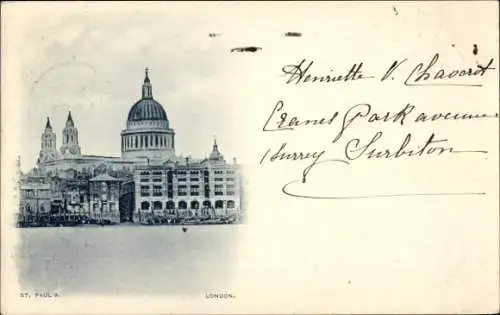 Henriette V. Chavorot
Cranes Park avenue
Surrey Surbiton
ST. PAUL'S. LONDON.